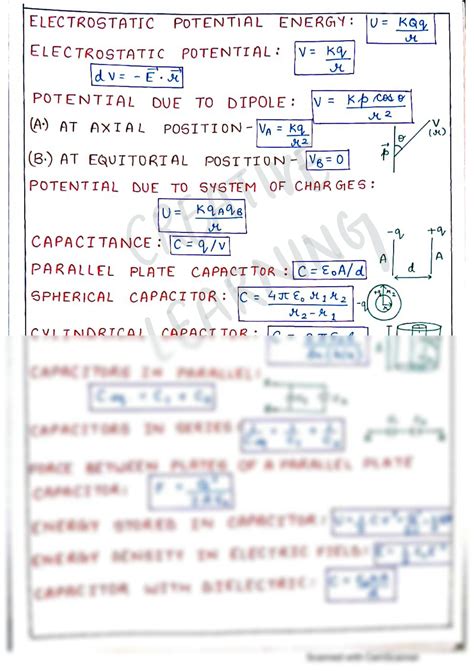 ELECTROSTATIC POTENTIAL ENERGY: U = KQq/r
ELECTROSTATIC POTENTIAL: V = Kq/r
dV = -E⃗·r⃗
POTENTIAL DUE TO DIPOLE: V = Kp cosθ/r²
(A·) AT AXIAL POSITION - V_A = Kq/r²
(B·) AT EQUITORIAL POSITION - V_B = 0
V (r) θ p⃗
POTENTIAL DUE TO SYSTEM OF CHARGES:
U = Kq_Aq_B/r
CAPACITANCE: C = q/V
-q +q
A d A
PARALLEL PLATE CAPACITOR: C = ε₀A/d
SPHERICAL CAPACITOR: C = 4πε₀ r₁r₂/r₂-r₁
CYLINDRICAL CAPACITOR:
CAPACITORS IN PARALLEL:
CAPACITORS IN SERIES:
FORCE BETWEEN PLATES OF A PARALLEL PLATE
CAPACITOR:
ENERGY STORED IN CAPACITOR:
ENERGY DENSITY IN ELECTRIC FIELD:
CAPACITOR WITH DIELECTRIC:
CREATIVE
LEARNING
Scanned with CamScanner